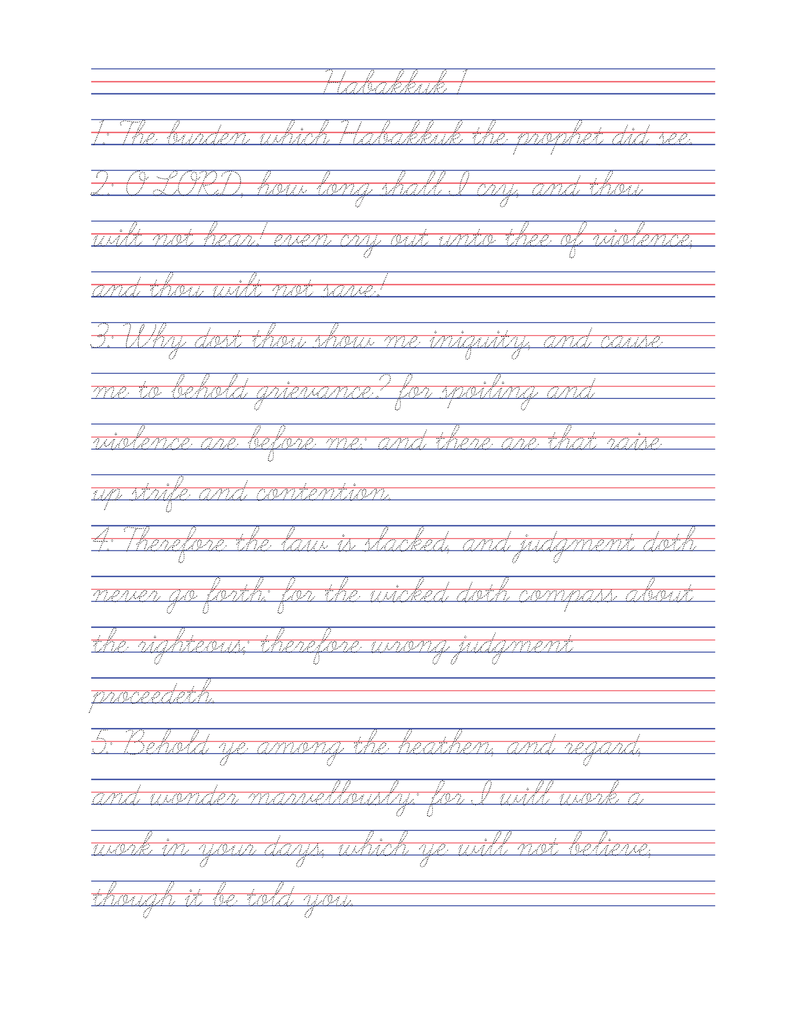 Habakkuk 1
1: The burden which Habakkuk the prophet did see.
2: O LORD, how long shall I cry, and thou
wilt not hear! even cry out unto thee of violence,
and thou wilt not save!
3: Why dost thou show me iniquity, and cause
me to behold grievance? for spoiling and
violence are before me: and there are that raise
up strife and contention.
4: Therefore the law is slacked, and judgment doth
never go forth: for the wicked doth compass about
the righteous; therefore wrong judgment
proceedeth.
5: Behold ye among the heathen, and regard,
and wonder marvellously: for I will work a
work in your days, which ye will not believe,
though it be told you.